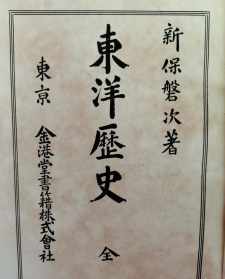 新保磐次著
東洋歴史 全
東亰 金港堂書籍株式會社